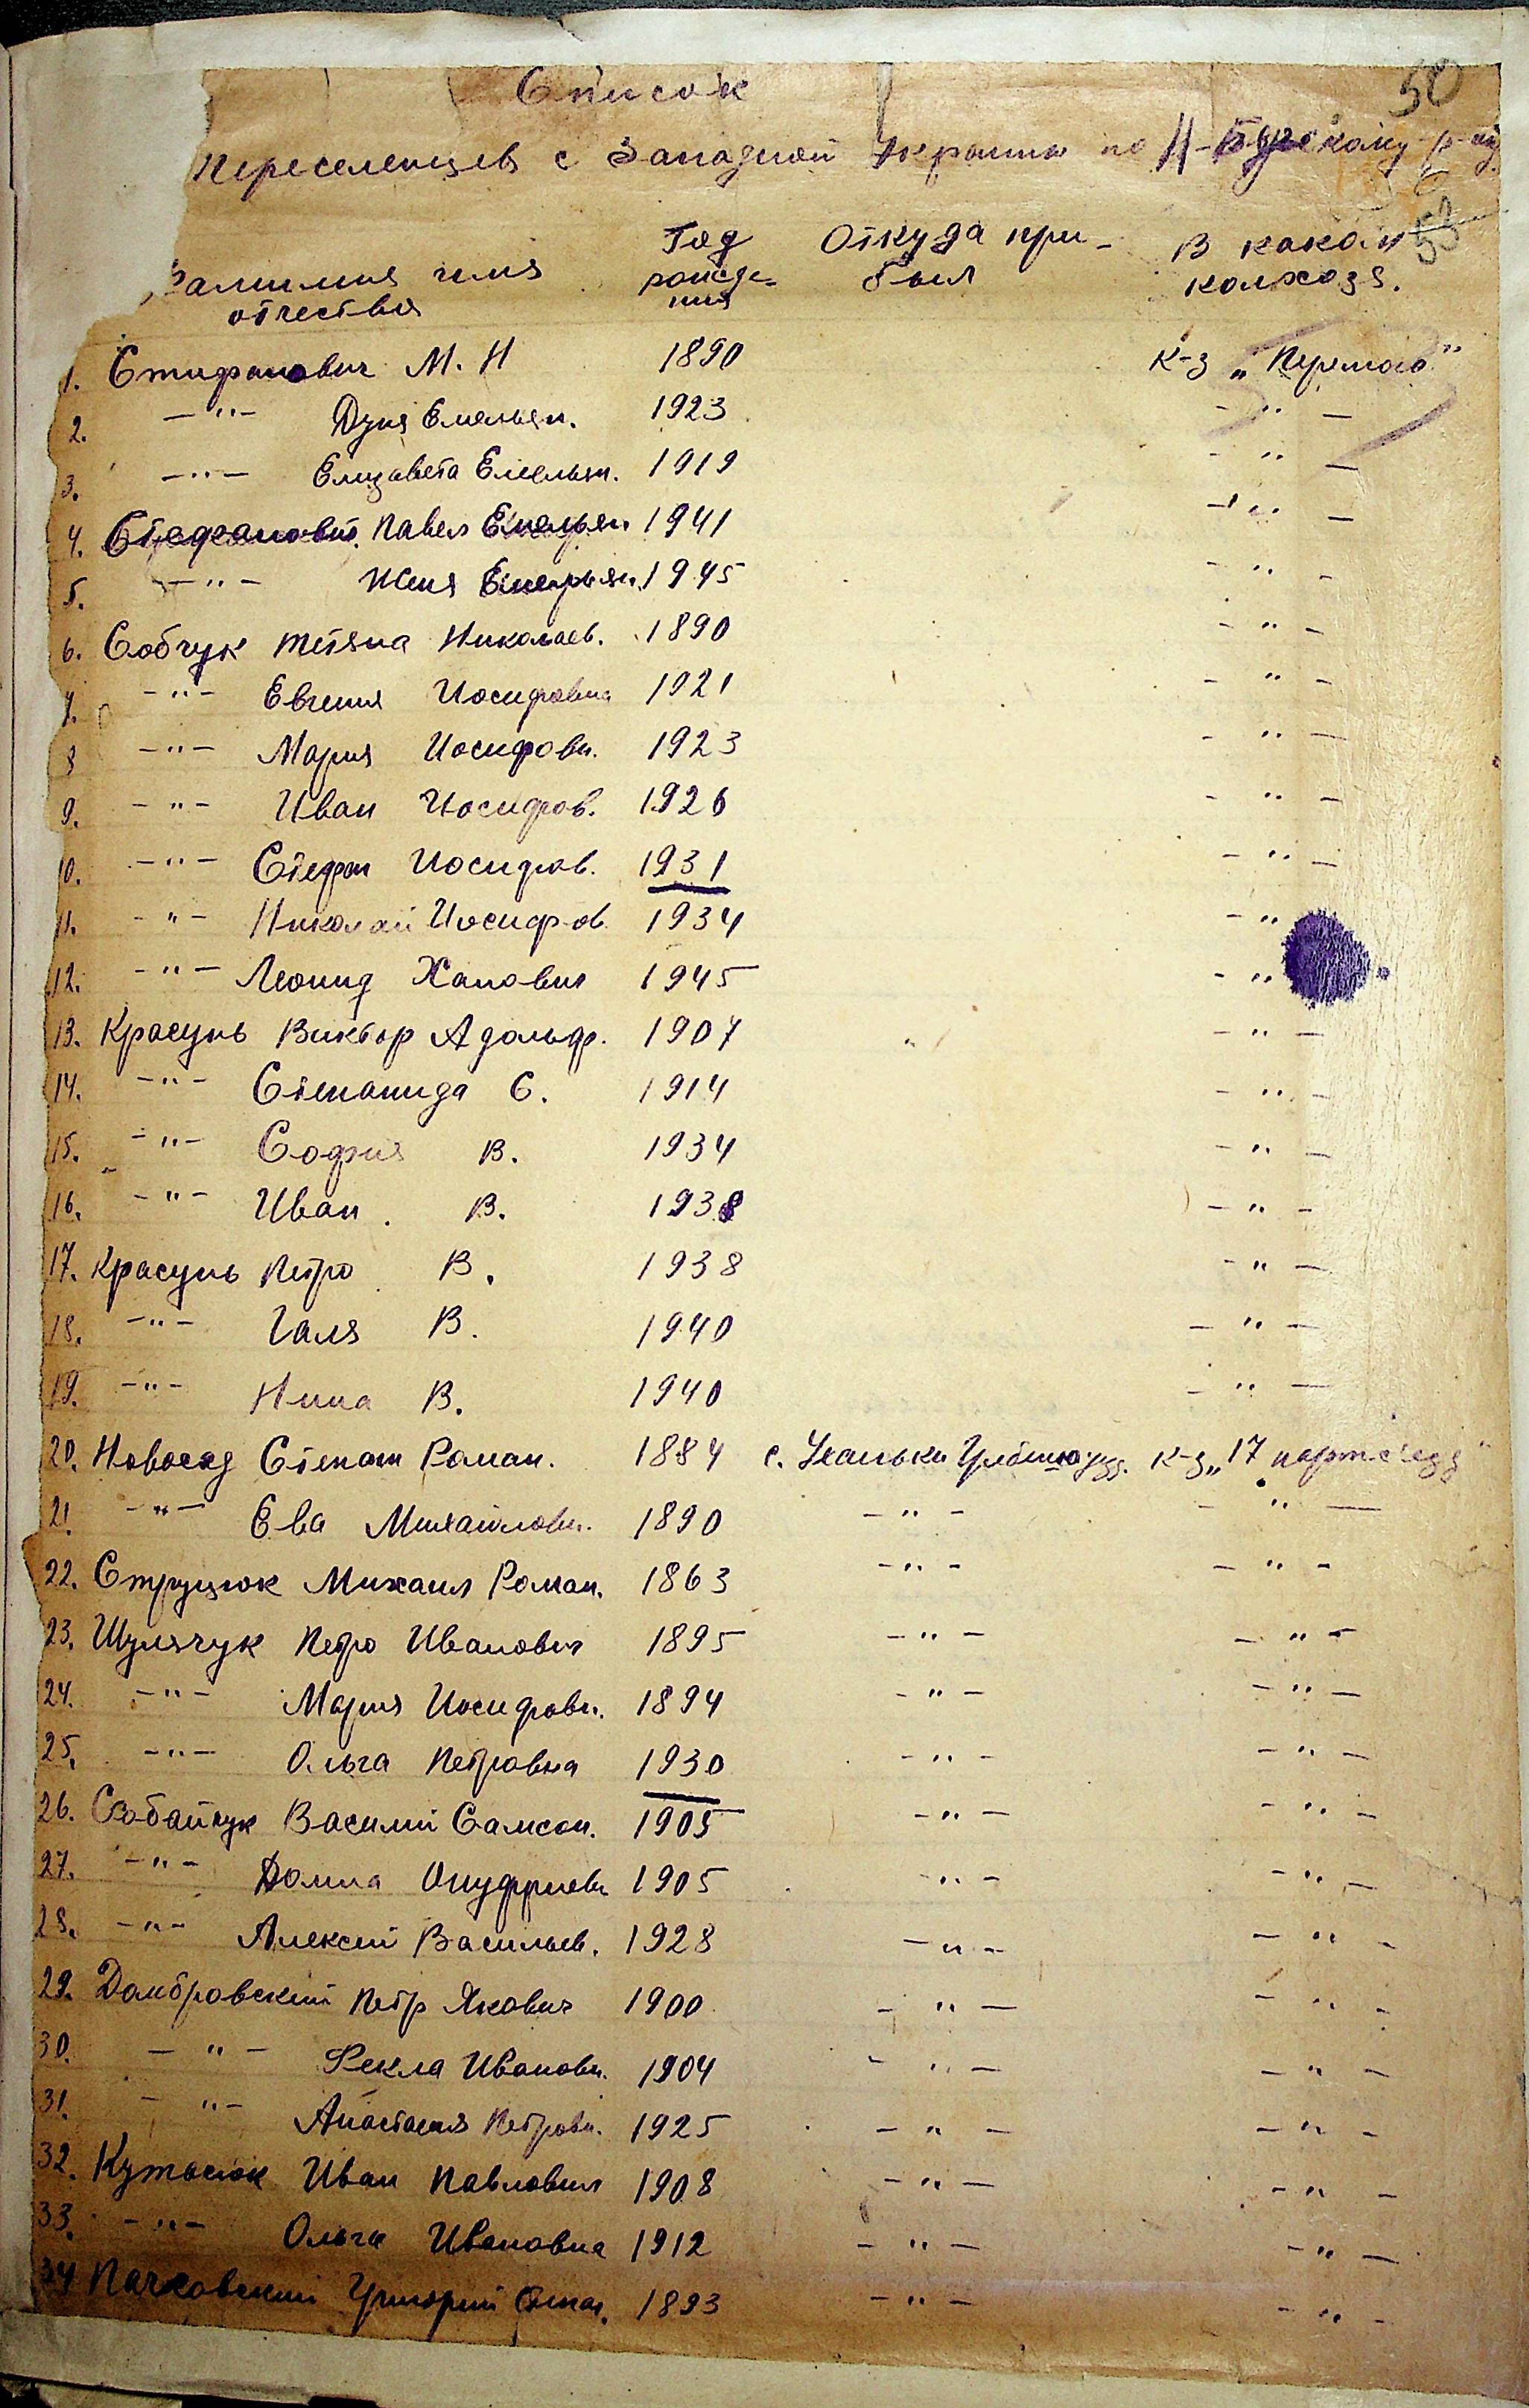 50
Список
Переселенцев с Западной Украины по Н-Бугскому р-ну
53
Фамилия имя отчества Год рождения Откуда прибыл В каком колхозе.
1. Стифанович М. Н 1890 к-з „Перемога"
2. -"- Дуня Емельян. 1923 -"-
3. -"- Елизавета Емельян. 1919 -"-
4. Стефанович Павел Емельян 1941 -"-
5. -"- Женя Емельян. 1945 -"-
6. Собчук Тетяна Николаев. 1890 -"-
7. -"- Евгения Иосифовна 1921 -"-
8 -"- Мария Иосифовн. 1923 -"-
9. -"- Иван Иосифов. 1926 -"-
10. -"- Стефан Иосифов. 1931 -"-
11. -"- Николай Иосифов 1934 -"
12. -"- Леонид Ханович 1945 -"
13. Красунь Виктор Адольф. 1907 -"-
14. -"- Степанида С. 1914 -"-
15. -"- София В. 1934 -"-
16. -"- Иван В. 1938 -"-
17. Красунь Петро В. 1938 -"-
18. -"- Галя В. 1940 -"-
19. -"- Нина В. 1940 -"-
20. Новосад Степан Роман. 1884 с. к-з „17 партсъезд"
21. -"- Ева Михайловн. 1890 -"- -"-
22. Струцюк Михаил Роман. 1863 -"- -"-
23. Шулячук Петро Иванович 1895 -"- -"-
24. -"- Мария Иосифовн. 1894 -"- -"-
25. -"- Ольга Петровна 1930 -"- -"-
26. Собайчук Василий Самсон. 1905 -"- -"-
27. -"- Домна Онуфриевн 1905 -"- -"-
28. -"- Алексей Васильев. 1928 -"- -"-
29. Домбровский Петр Якович 1900 -"- -"-
30. -"- Фекла Ивановн. 1904 -"- -"-
31. -"- Анастасия Петровн. 1925 -"- -"-
32. Кутасюк Иван Павлович 1908 -"- -"-
33. -"- Ольга Ивановна 1912 -"- -"-
34 Пачковский Григорий 1893 -"- -"-